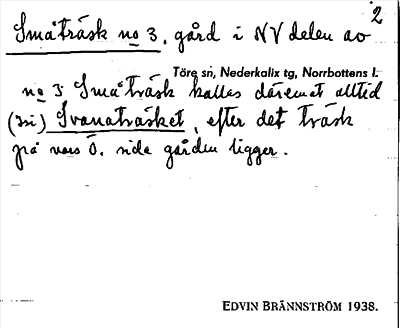 2
Småträsk no 3, gård i NV delen av
Töre sn, Nederkalix tg, Norrbottens l.
no 3 Småträsk kallas däremot alltid
(3si) Svanaträsket, efter det träsk
på vars Ö. sida gården ligger.
EDVIN BRÄNNSTRÖM 1938.